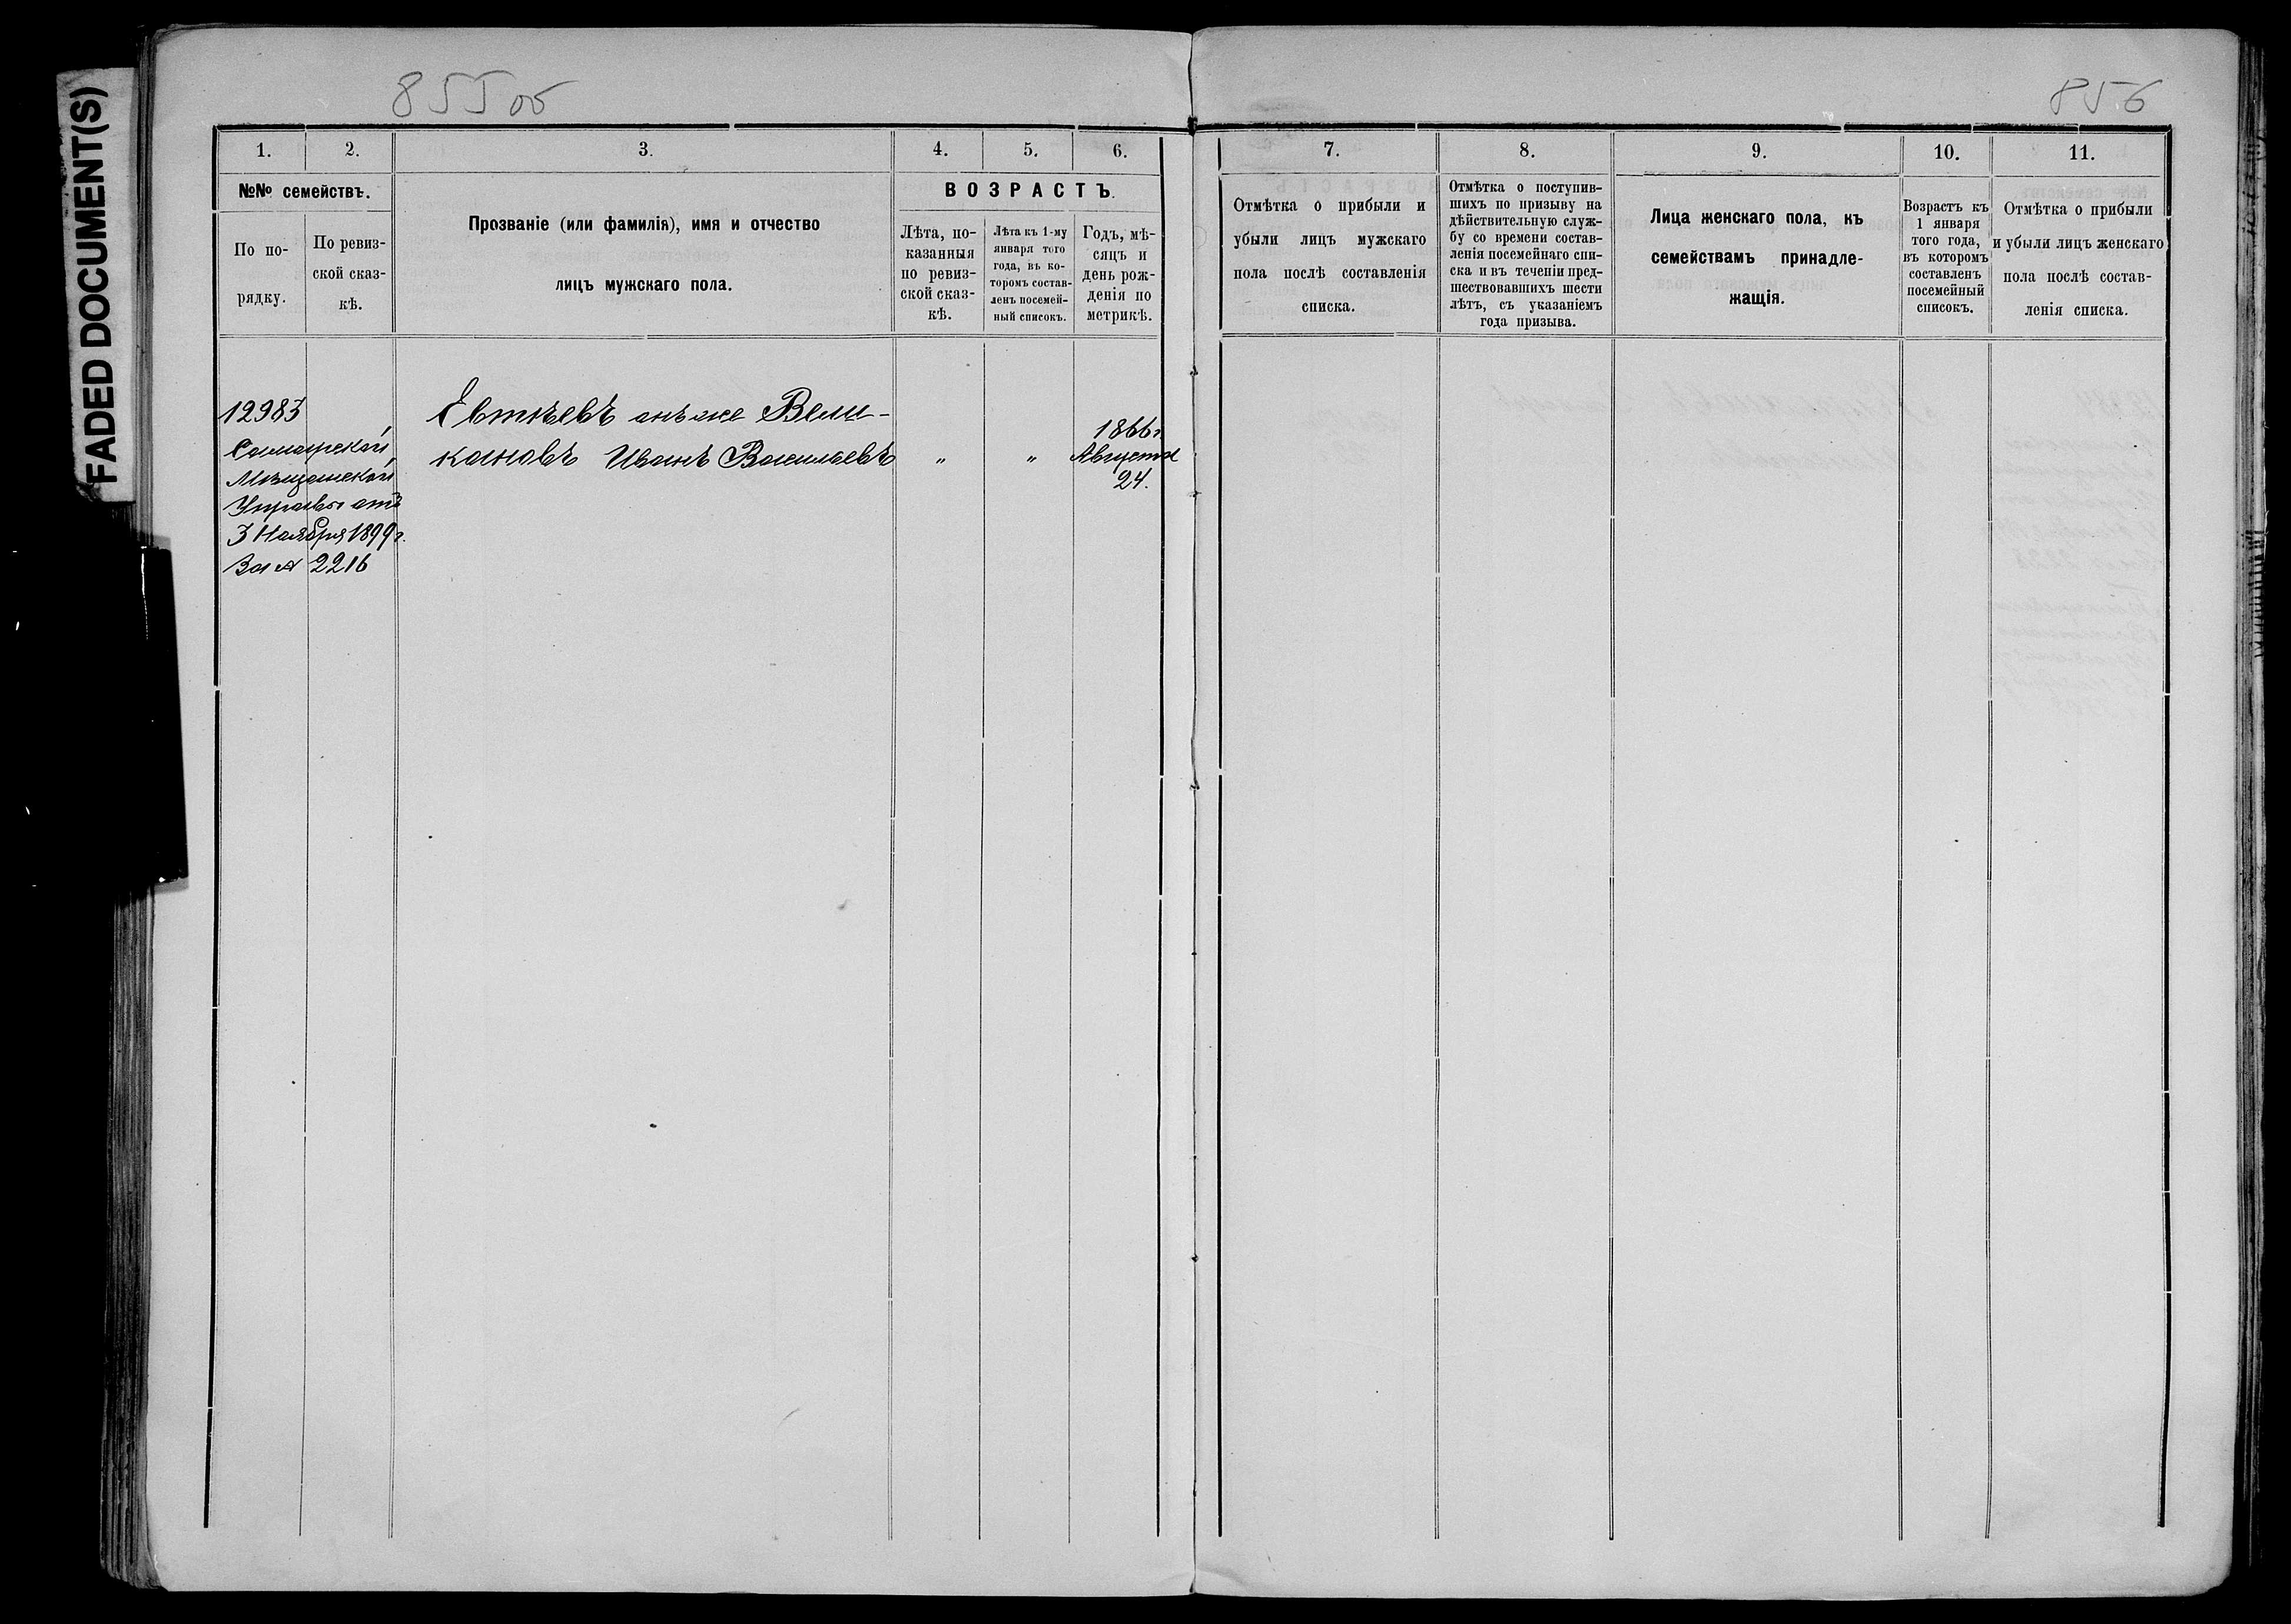 FADED DOCUMENT(S)
855 об
856
1.
2.
3.
4.
5.
6.
№№ семействъ.
По по-
рядку.
По ревиз-
ской сказ-
кѣ.
Прозваніе (или фамилія), имя и отчество
лицъ мужскаго пола.
ВОЗРАСТЪ.
Лѣта, по-
казанныя
по ревиз-
ской сказ-
кѣ.
Лѣта къ 1-му
января того
года, въ ко-
торомъ состав-
ленъ посемей-
ный списокъ.
Годъ, мѣ-
сяцъ и
день рож-
денія по
метрикѣ.
12983
Самарской
Мѣщанской
Управы отъ
3 Ноября 1899 г.
За № 2216
Евтѣевъ онъ же Вели-
кановъ Иванъ Васильевъ
"
"
1866 г.
Августа
24.
7.
8.
9.
10.
11.
Отмѣтка о прибыли и
убыли лицъ мужскаго
пола послѣ составленія
списка.
Отмѣтка о поступив-
шихъ по призыву на
дѣйствительную служ-
бу со времени состав-
ленія посемейнаго спи-
ска и въ теченіи пред-
шествовавшихъ шести
лѣтъ, съ указаніемъ
года призыва.
Лица женскаго пола, къ
семействамъ принадле-
жащія.
Возрастъ къ
1 января
того года,
въ которомъ
составленъ
посемейный
списокъ.
Отмѣтка о прибыли
и убыли лицъ женскаго
пола послѣ состав-
ленія списка.